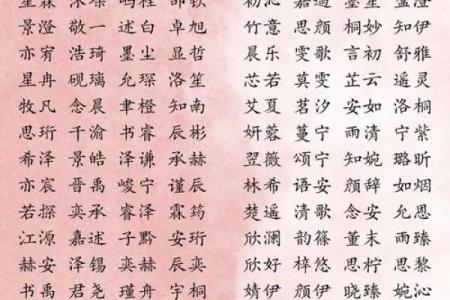 景澄 敬一 述白 卓旭 竹意 思颜 桐妙 知伊
亦宥 浩琦 墨尘 显哲 晨乐 雯歌 言初 舒雅
星冉 砚璃 允琛 洛笙 芯若 莫雯 芷云 遥灵
牧凡 念晨 聿橙 知南 艾夏 茗汐 安如 洛桐
思珩 千渝 书睿 辰彬 妍蓉 蔓宁 雨清 宁紫
希泽 景皓 泽谦 承赫 翌薇 颂可 知婉 璐昕
亦宸 晋禹 峻宁 谨辰 林希 语安 颜辞 如烟
若探 奕承 睿泽 霖筠 楚遥 清歌 念安 允思
江源 嘉述 子黔 安珩 欣澜 韵篠 董末 雨臻
赫安 泽锡 奕赫 承奕 欣好 梓悠 思柠 思臻
书禹 君尧 瑾舟 宇桐 婧伊 思颜 晓臻 婉沁